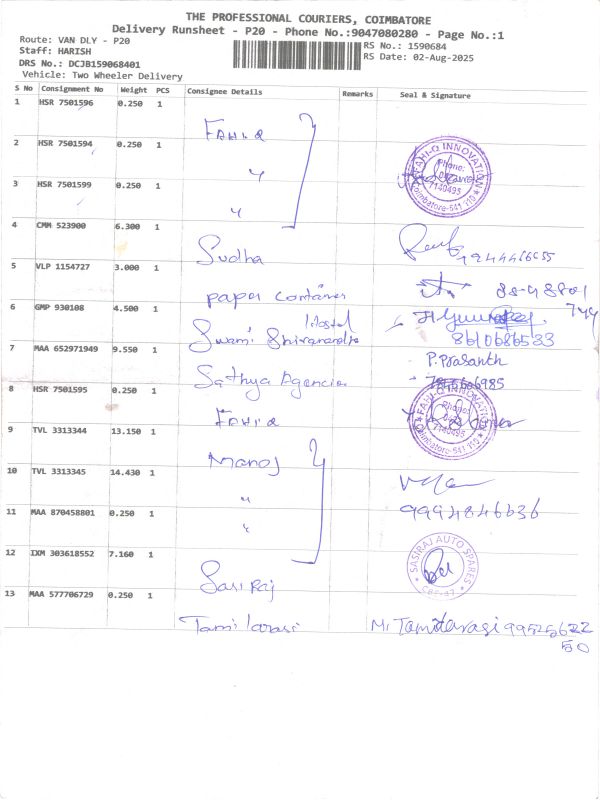 THE PROFESSIONAL COURIERS, COIMBATORE
Delivery Runsheet - P20 - Phone No.:9047080280 - Page No.:1
Route: VAN DLY - P20
Staff: HARISH
DRS No.: DCJB159068401
Vehicle: Two Wheeler Delivery
RS No.: 1590684
RS Date: 02-Aug-2025
S No Consignment No Weight PCS Consignee Details Remarks Seal & Signature
1 HSR 7501596 0.250 1 FAHIQ
2 HSR 7501594 0.250 1 "
FAHI-Q INNOVATION
Phone:
7140495
Coimbatore-541 110
3 HSR 7501599 0.250 1 "
4 CMM 523900 6.300 1 Sudha
5 VLP 1154727 3.000 1 paper container
6 GMP 930108 4.500 1 Swami Shivananda Hostel
8610686533
7 MAA 652971949 9.550 1 Sathya Agencies P. Prasanth
8 HSR 7501595 0.250 1 FAHIQ
FAHI-Q INNOVATION
Phone:
7140495
Coimbatore-541 110
9 TVL 3313344 13.150 1 Manoj
10 TVL 3313345 14.430 1 "
11 MAA 870458801 0.250 1 " 9994846636
12 IXM 303618552 7.160 1 Sasiraj
SASIRAJ AUTO SPARES
13 MAA 577706729 0.250 1 Tamilarasi